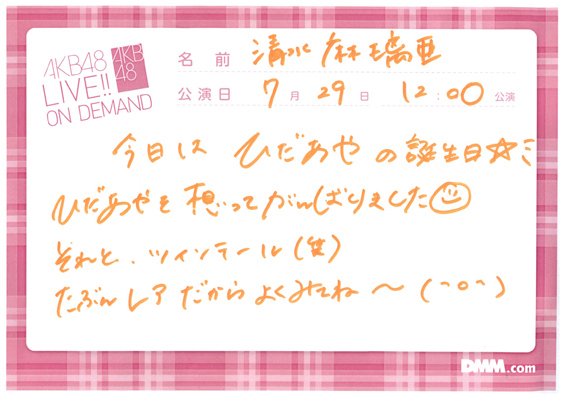 AKB48
LIVE!!
ON DEMAND
AKB
48
名前 清水麻璃亜
公演日 7月29日 12:00 公演
今日は ひだあや の誕生日☆ミ
ひだあやを想ってがんばりました☺
それと、ツインテール(笑)
たぶんレアだからよくみてね〜(^o^)
DMM.com